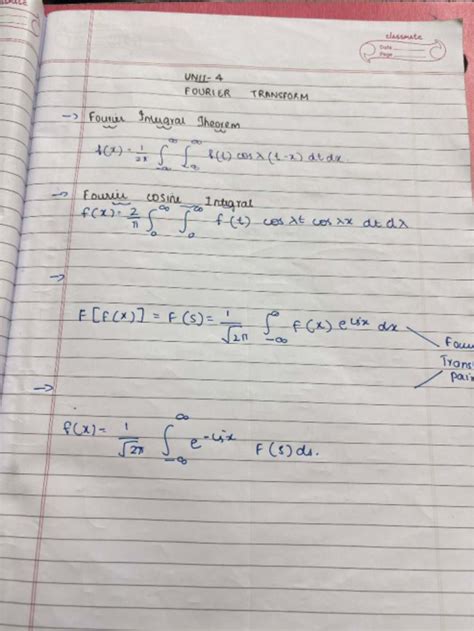 classmate
Date
Page
UNIT-4
FOURIER TRANSFORM
→ Fourier Integral Theorem
f(x) = 1/2π ∫_{-∞}^{∞} ∫_{-∞}^{∞} f(t) cos λ (t-x) dt dx.
→ Fourier cosine Integral
f(x) = 2/π ∫_0^∞ ∫_0^∞ f(t) cos λt cos λx dt dλ
→
F[f(x)] = F(s) = 1/√2π ∫_{-∞}^{∞} f(x) e^{isx} dx
Four
Trans
pair
→
f(x) = 1/√2π ∫_{-∞}^{∞} e^{-isx} F(s) ds.